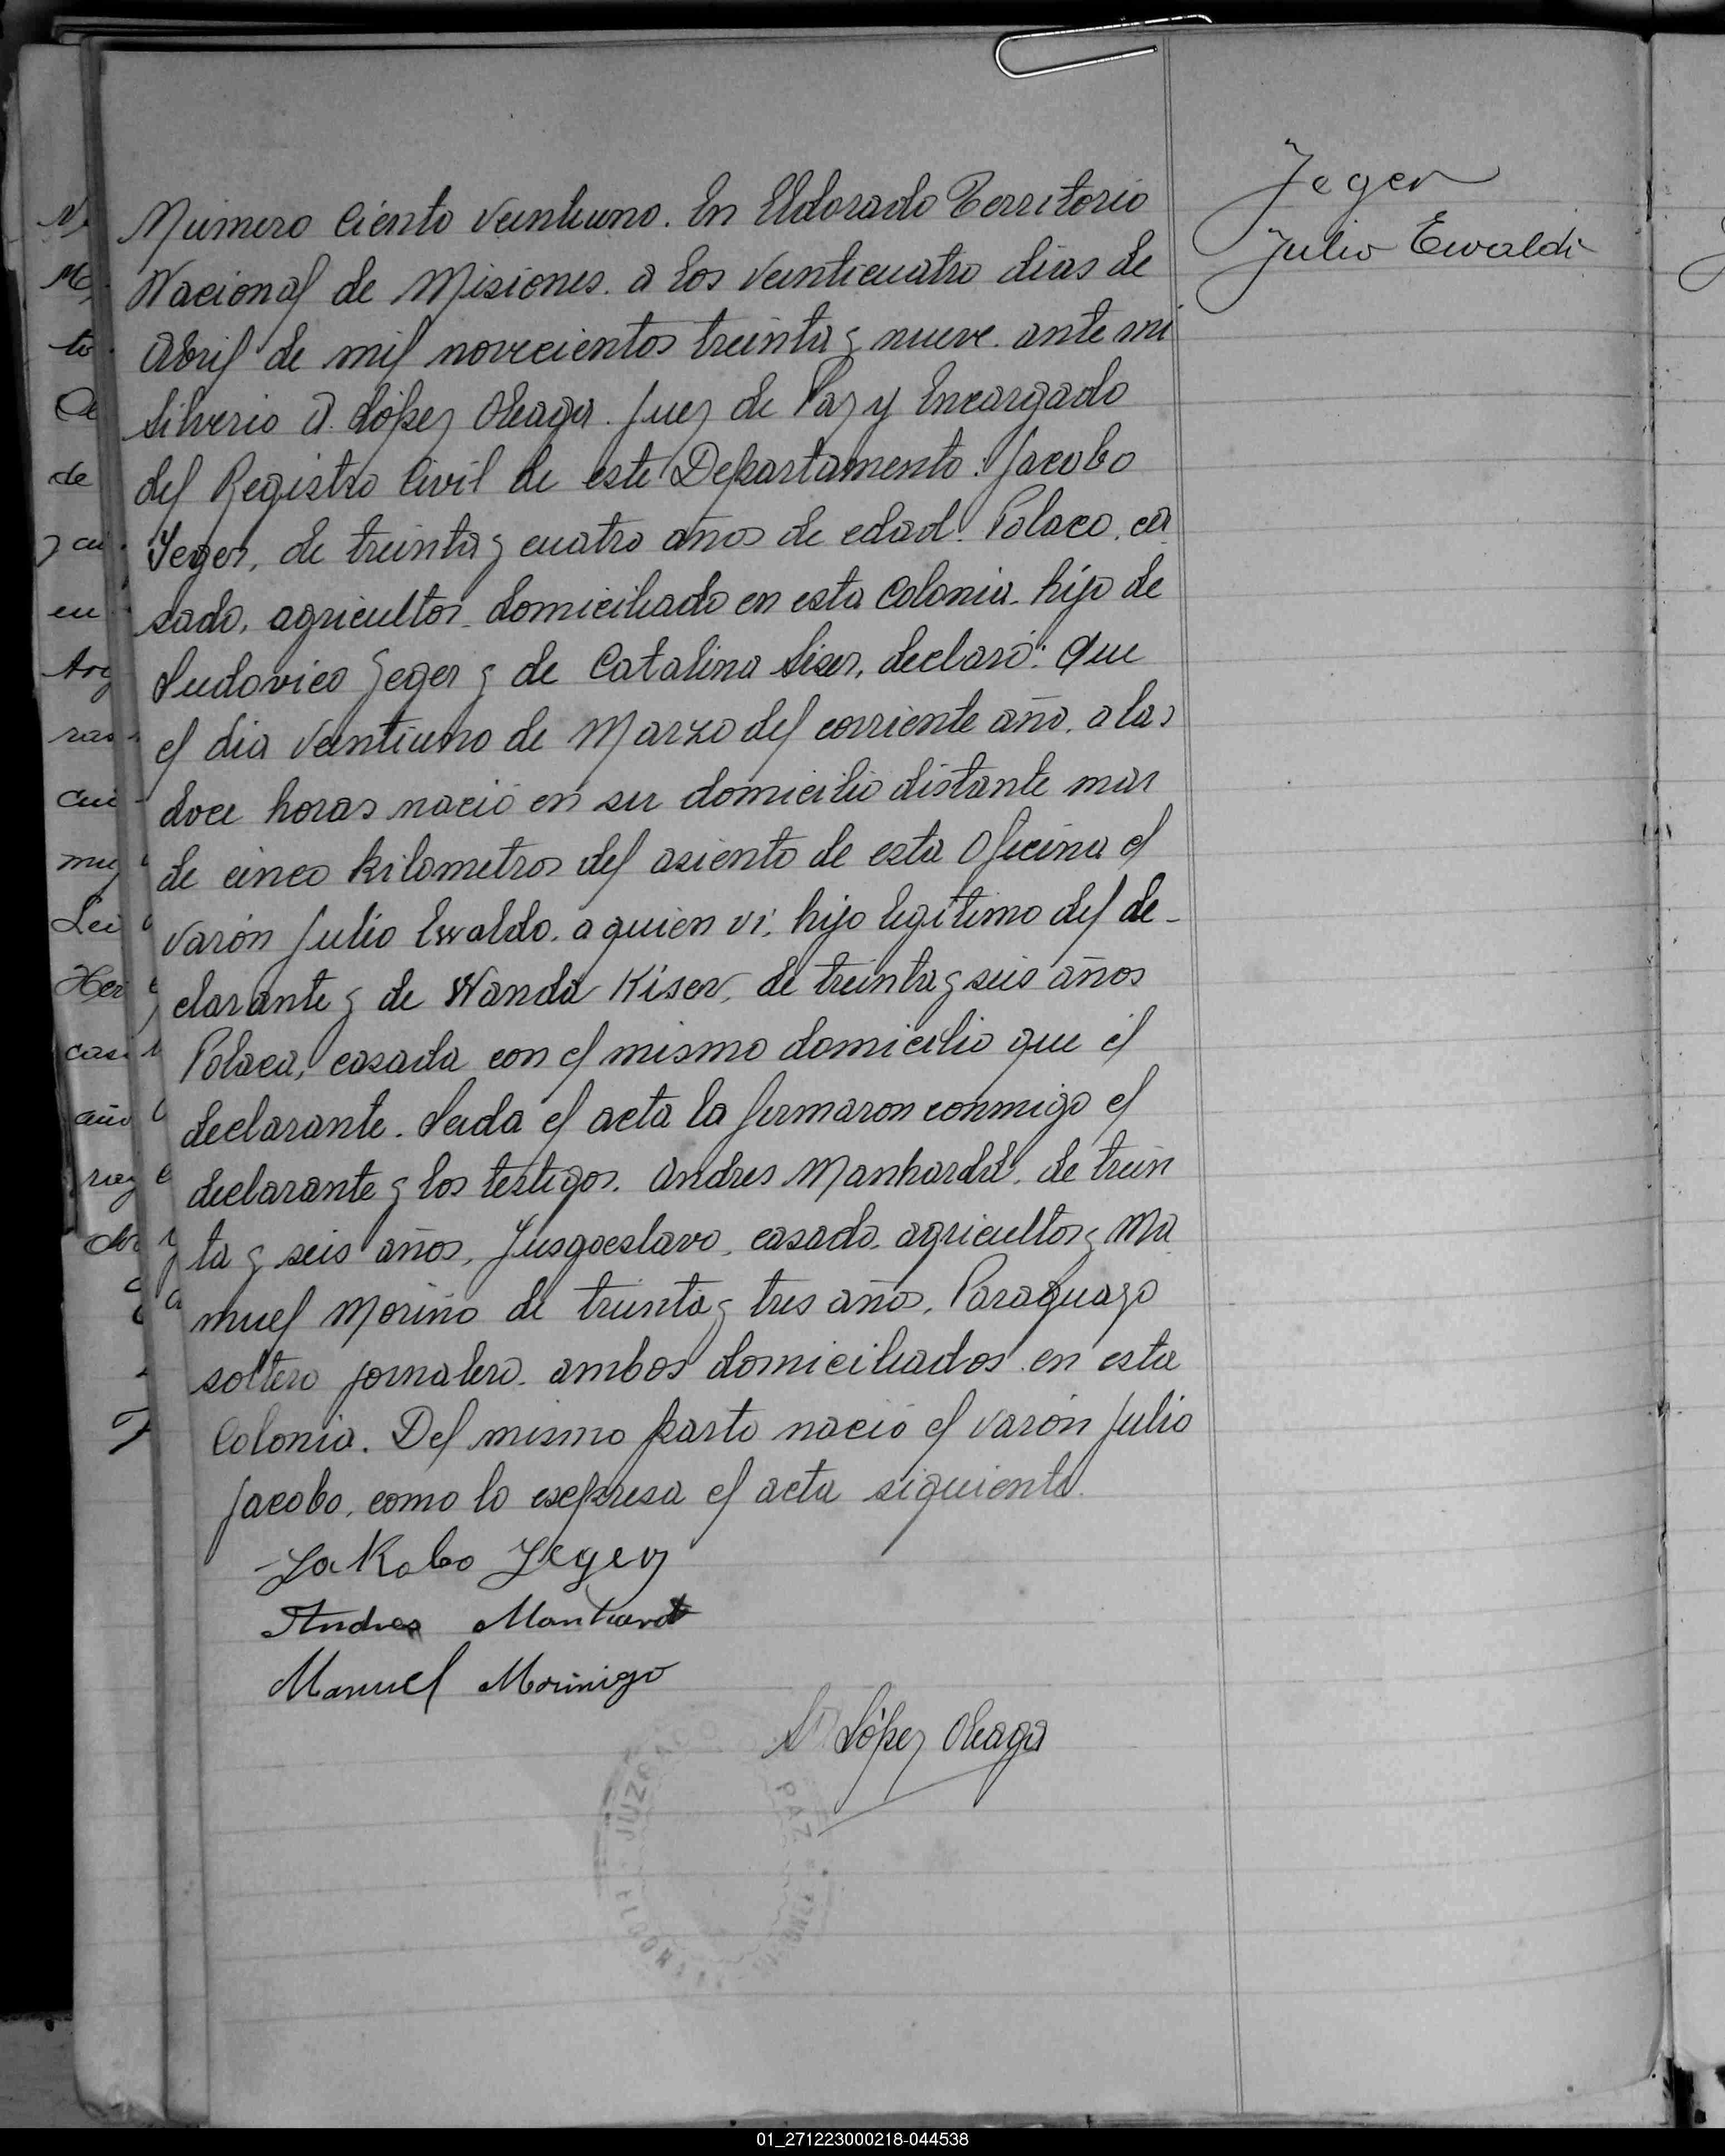 Jeger
Julio Ewaldo
Número Ciento Veintiuno. En Eldorado Territorio
Nacional de Misiones. a los veinticuatro dias de
Abril de mil novecientos treinta y nueve. ante mi
Silverio A. López Oleaga. Juez de Paz y Encargado
del Registro Civil de este Departamento. Jacobo
Jeger, de treinta y cuatro años de edad. Polaco, ca
sado, agricultor domiciliado en esta Colonia. hijo de
Ludovico Jeger y de Catalina Siser, declaró: Que
el dia veintiuno de Marzo del corriente año. a las
doce horas nació en su domicilio distante mas
de cinco kilometros del asiento de esta Oficina el
varón Julio Ewaldo. a quien vi, hijo legitimo del de-
clarante y de Wanda Kiser, de treinta y seis años
Polaca, casada con el mismo domicilio que el
declarante. Leida el acta la firmaron conmigo el
declarante y los testigos. Andres Manhardt, de trein
ta y seis años, Jusgoeslavo, casado. agricultor y Ma
nuel Moriño de treinta y tres años, Paraguayo
soltero jornalero. ambos domiciliados en esta
Colonia. Del mismo parto nació el varón Julio
Jacobo, como lo expresa el acta siguiente.
Jakobo Jeger
Andres Manhardt
Manuel Morinigo
S A López Oleaga
PAZ
01_271223000218-044538